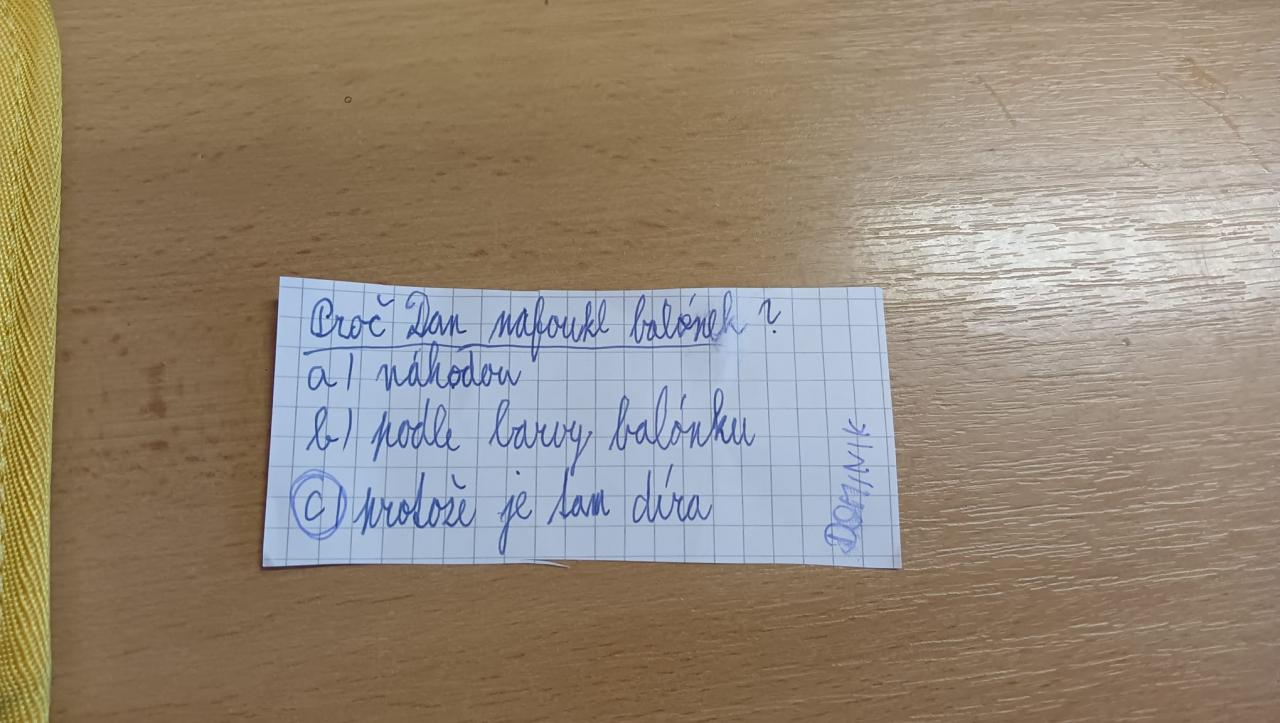 Proč Dan nafoukl balónek?
a) náhodou
b) podle barvy balónku
c) protože je tam díra
DOMINIK